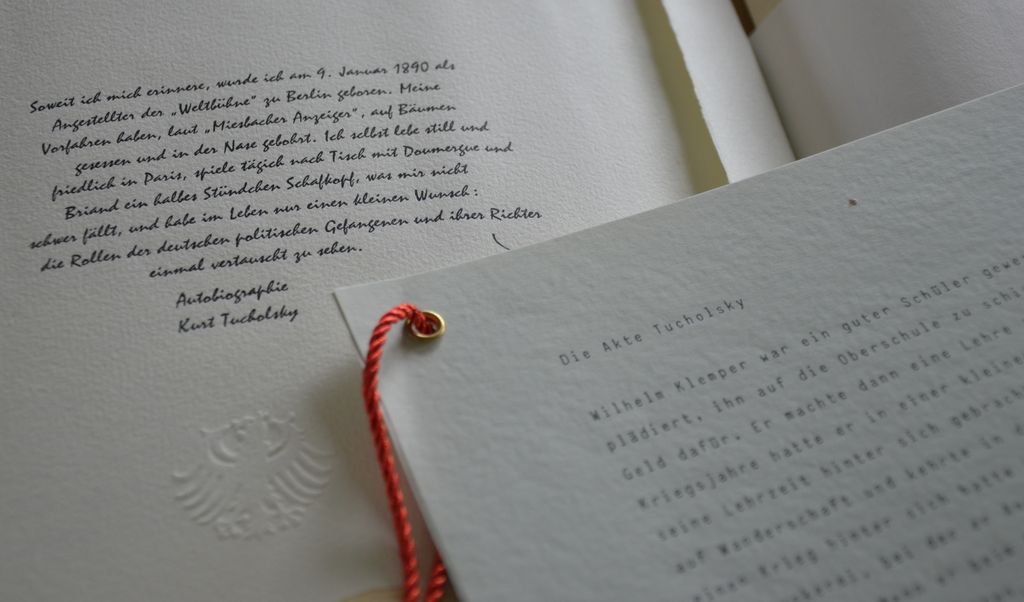 Soweit ich mich erinnere, wurde ich am 9. Januar 1890 als
Angestellter der „Weltbühne" zu Berlin geboren. Meine
Vorfahren haben, laut „Miesbacher Anzeiger", auf Bäumen
gesessen und in der Nase gebohrt. Ich selbst lebe still und
friedlich in Paris, spiele tägich nach Tisch mit Doumergue und
Briand ein halbes Stündchen Schafkopf, was mir nicht
schwer fällt, und habe im Leben nur einen kleinen Wunsch:
die Rollen der deutschen politischen Gefangenen und ihrer Richter
einmal vertauscht zu sehen.
Autobiographie
Kurt Tucholsky
Die Akte Tucholsky
Wilhelm Klemper war ein guter Schüler
plädiert, ihn auf die Oberschule zu
Geld dafür. Er machte dann eine Lehre
Kriegsjahre hatte er in einer
seine Lehrzeit hinter sich gebracht
auf Wanderschaft und kehrte in
einen Krieg hinter sich hatte
bei der er